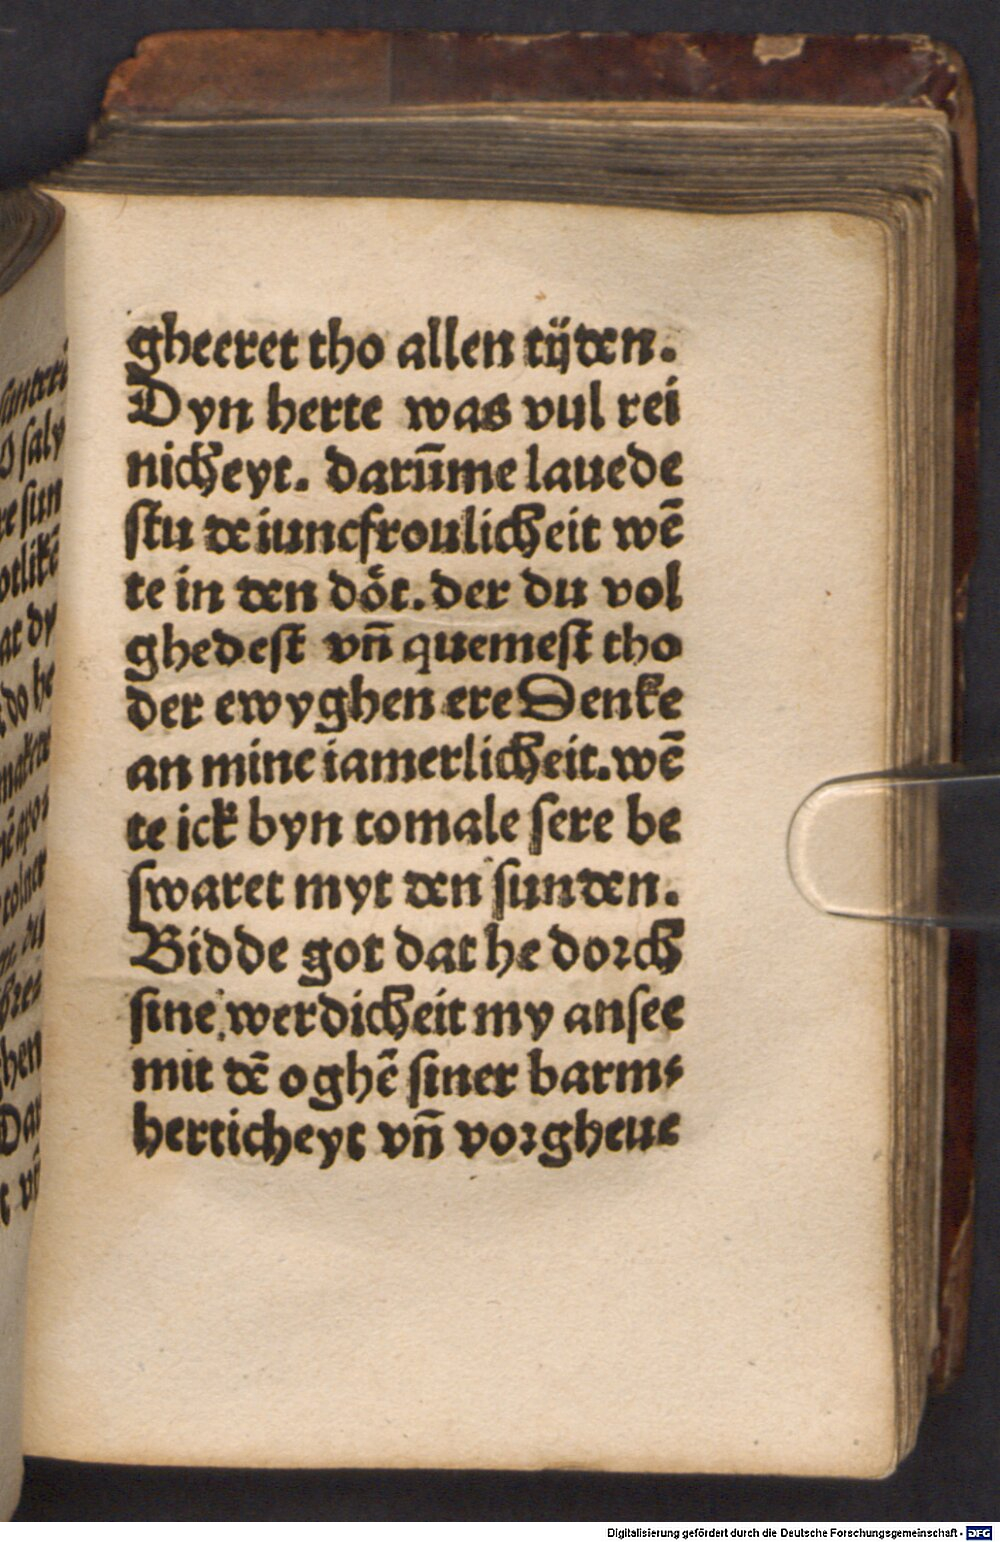 gheeret tho allen tijden.
Dyn herte was vul rei
nicheyt. darūme lauede
stu de iuncfroulicheit wē
te in den döt. der du vol
ghedest vn̄ quemest tho
der ewyghen ere Denke
an mine iamerlicheit. wē
te ick byn tomale sere be
swaret myt den sunden.
Bidde got dat he dorch
sine werdicheit my ansee
mit dē oghē siner barm⸗
herticheyt vn̄ vorgheue
Digitalisierung gefördert durch die Deutsche Forschungsgemeinschaft - DFG